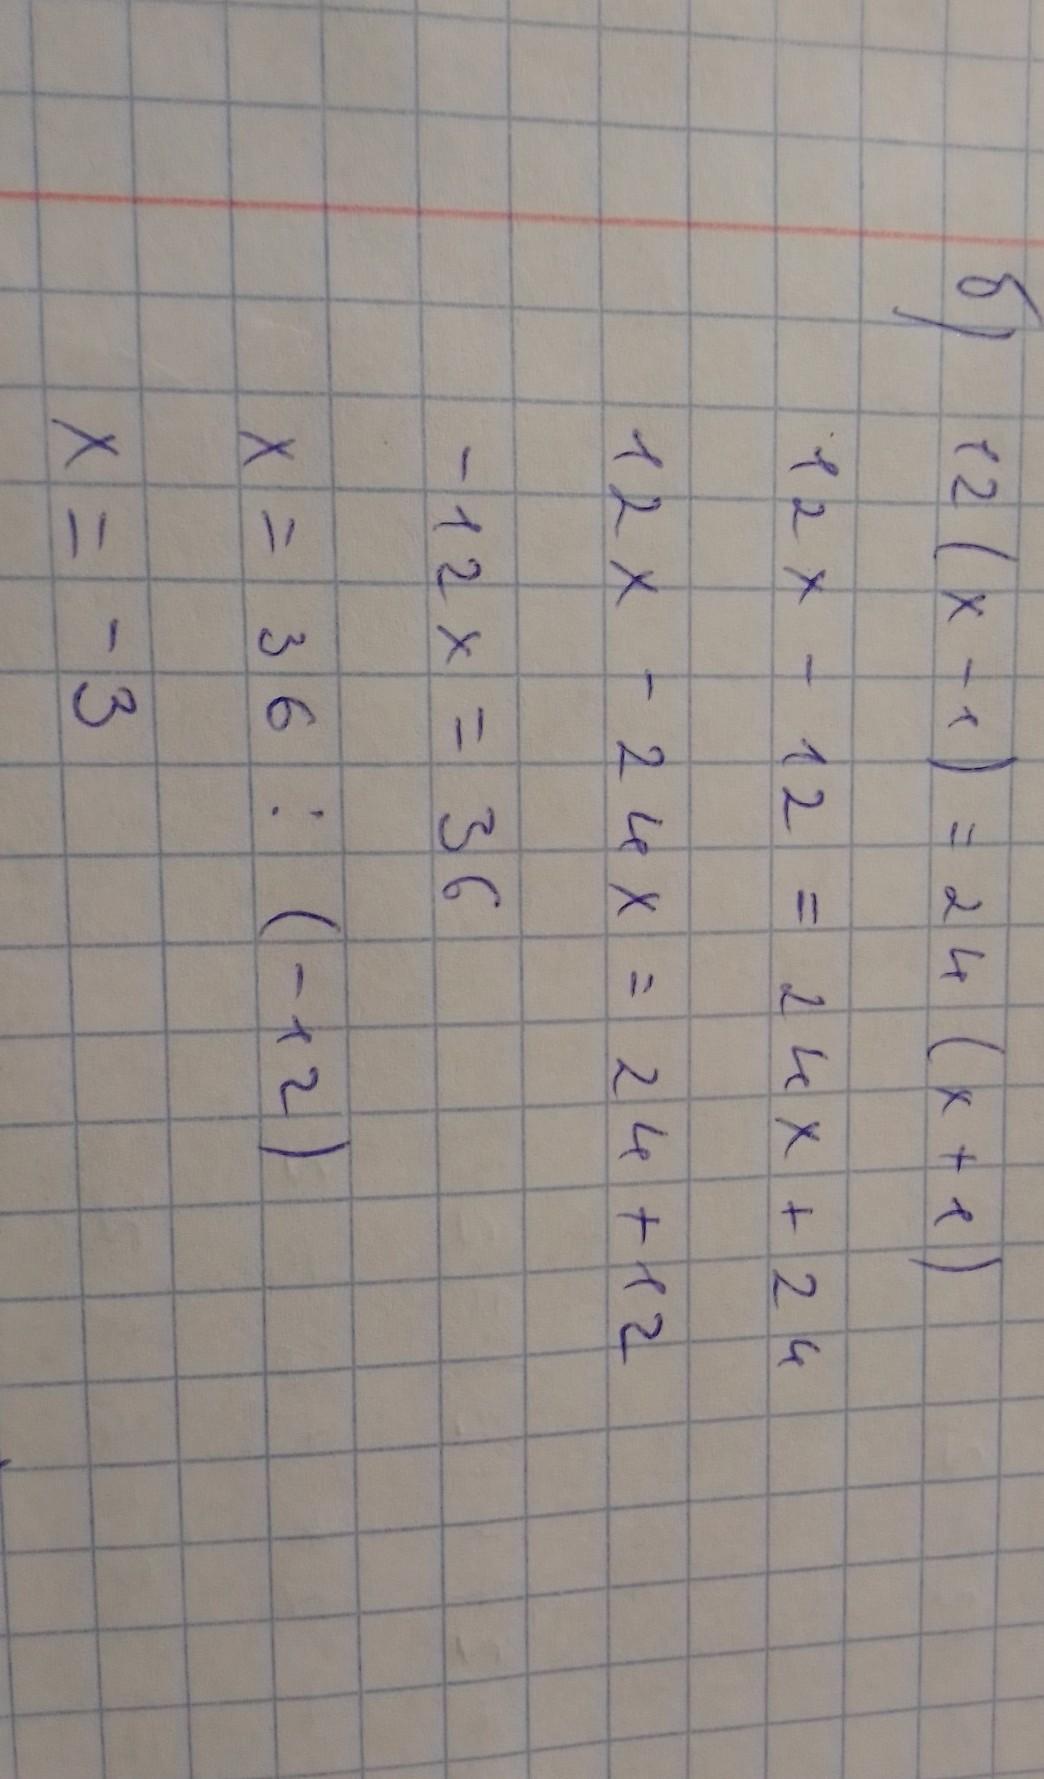 б) 12(x-1)=24(x+1)
12x-12=24x+24
12x-24x=24+12
-12x=36
x=36:(-12)
x=-3